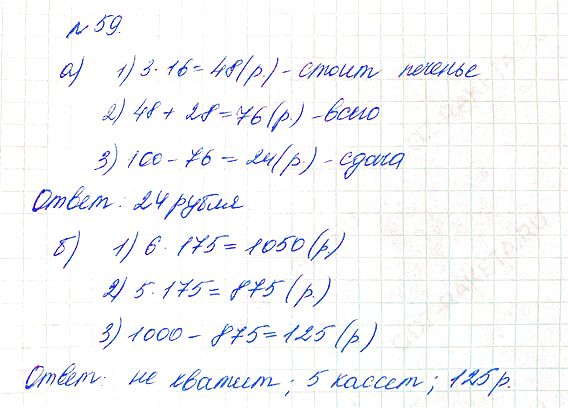 № 59.
а) 1) 3 · 16 = 48 (р.) - стоит печенье
2) 48 + 28 = 76 (р.) - всего
3) 100 - 76 = 24 (р.) - сдача
Ответ: 24 рубля
б) 1) 6 · 175 = 1050 (р)
2) 5 · 175 = 875 (р.)
3) 1000 - 875 = 125 (р)
Ответ: не хватит; 5 кассет; 125 р.